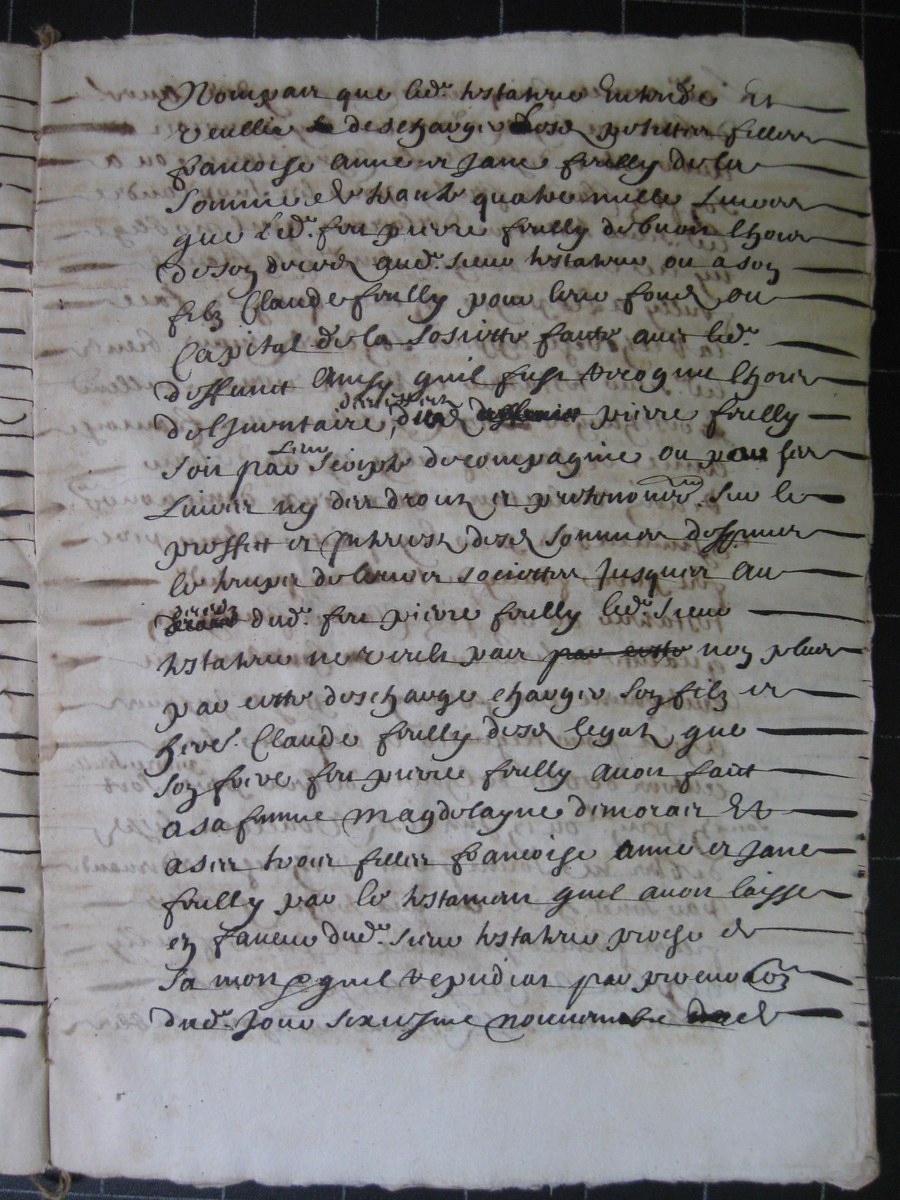 Nompair que led.r testateur Entende Et
veullie descharger sesd petittes filles
francoise anne et Jane frully de la
somme de trante quatre mille Livres
que led.t feu pierre frully debvoit lheure
de son deces aud.t sieur testateur ou a son
filz Claude frully pour leur fond ou
Capital de la sosiette faute avec led.t
deffunct Ainsy quil fust recogneu lheure
de l'Inventaire, dud pierre frully
soit par leurs Scripte de compagnie ou par ses
Livres ny des droitz et pretentions sur le
proffict et Interest desd sommes despuis
le temps de leurs societtes Jusques Au
deces dud.t feu pierre frully led.t sieur
testateur ne veult pas par cette non plus
par cette descharge charger son filz et
heret. Claude frully desd legatz que
son frere feu pierre frully avoit faict
a sa femme Magdelayne dimorais Et
a ses trois filles francoise anne et Jane
frully par le testament quil avoit laisse
en faveur dud.t sieur testateur proche de
sa mort quil repudiat par
dud.t Jour sixiesme novembre de